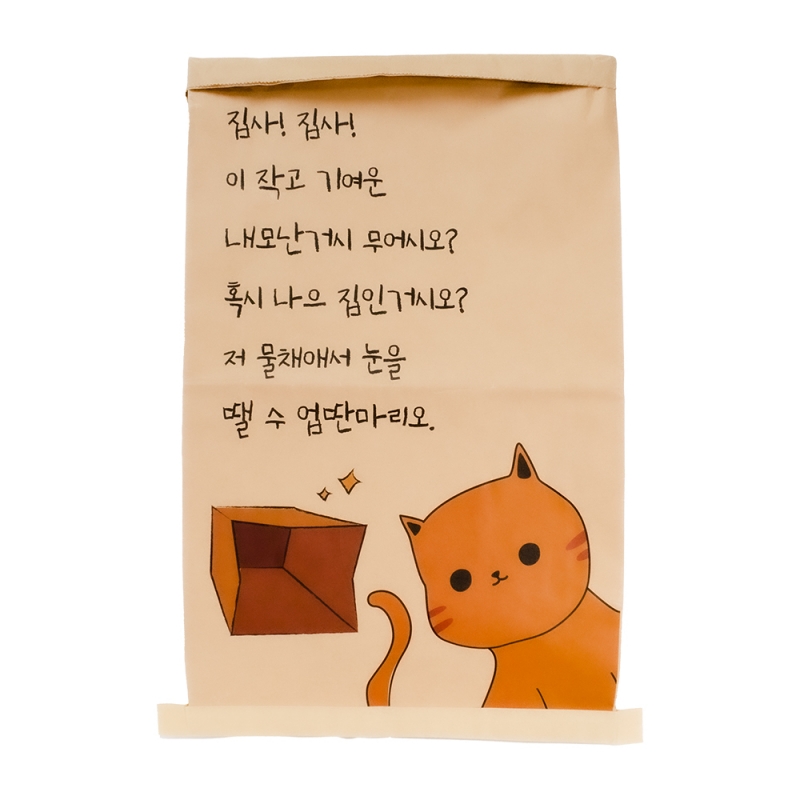 집사! 집사!
이 작고 기여운
내모난거시 무어시오?
혹시 나으 집인거시오?
저 물채애서 눈을
땔 수 업딴마리오.